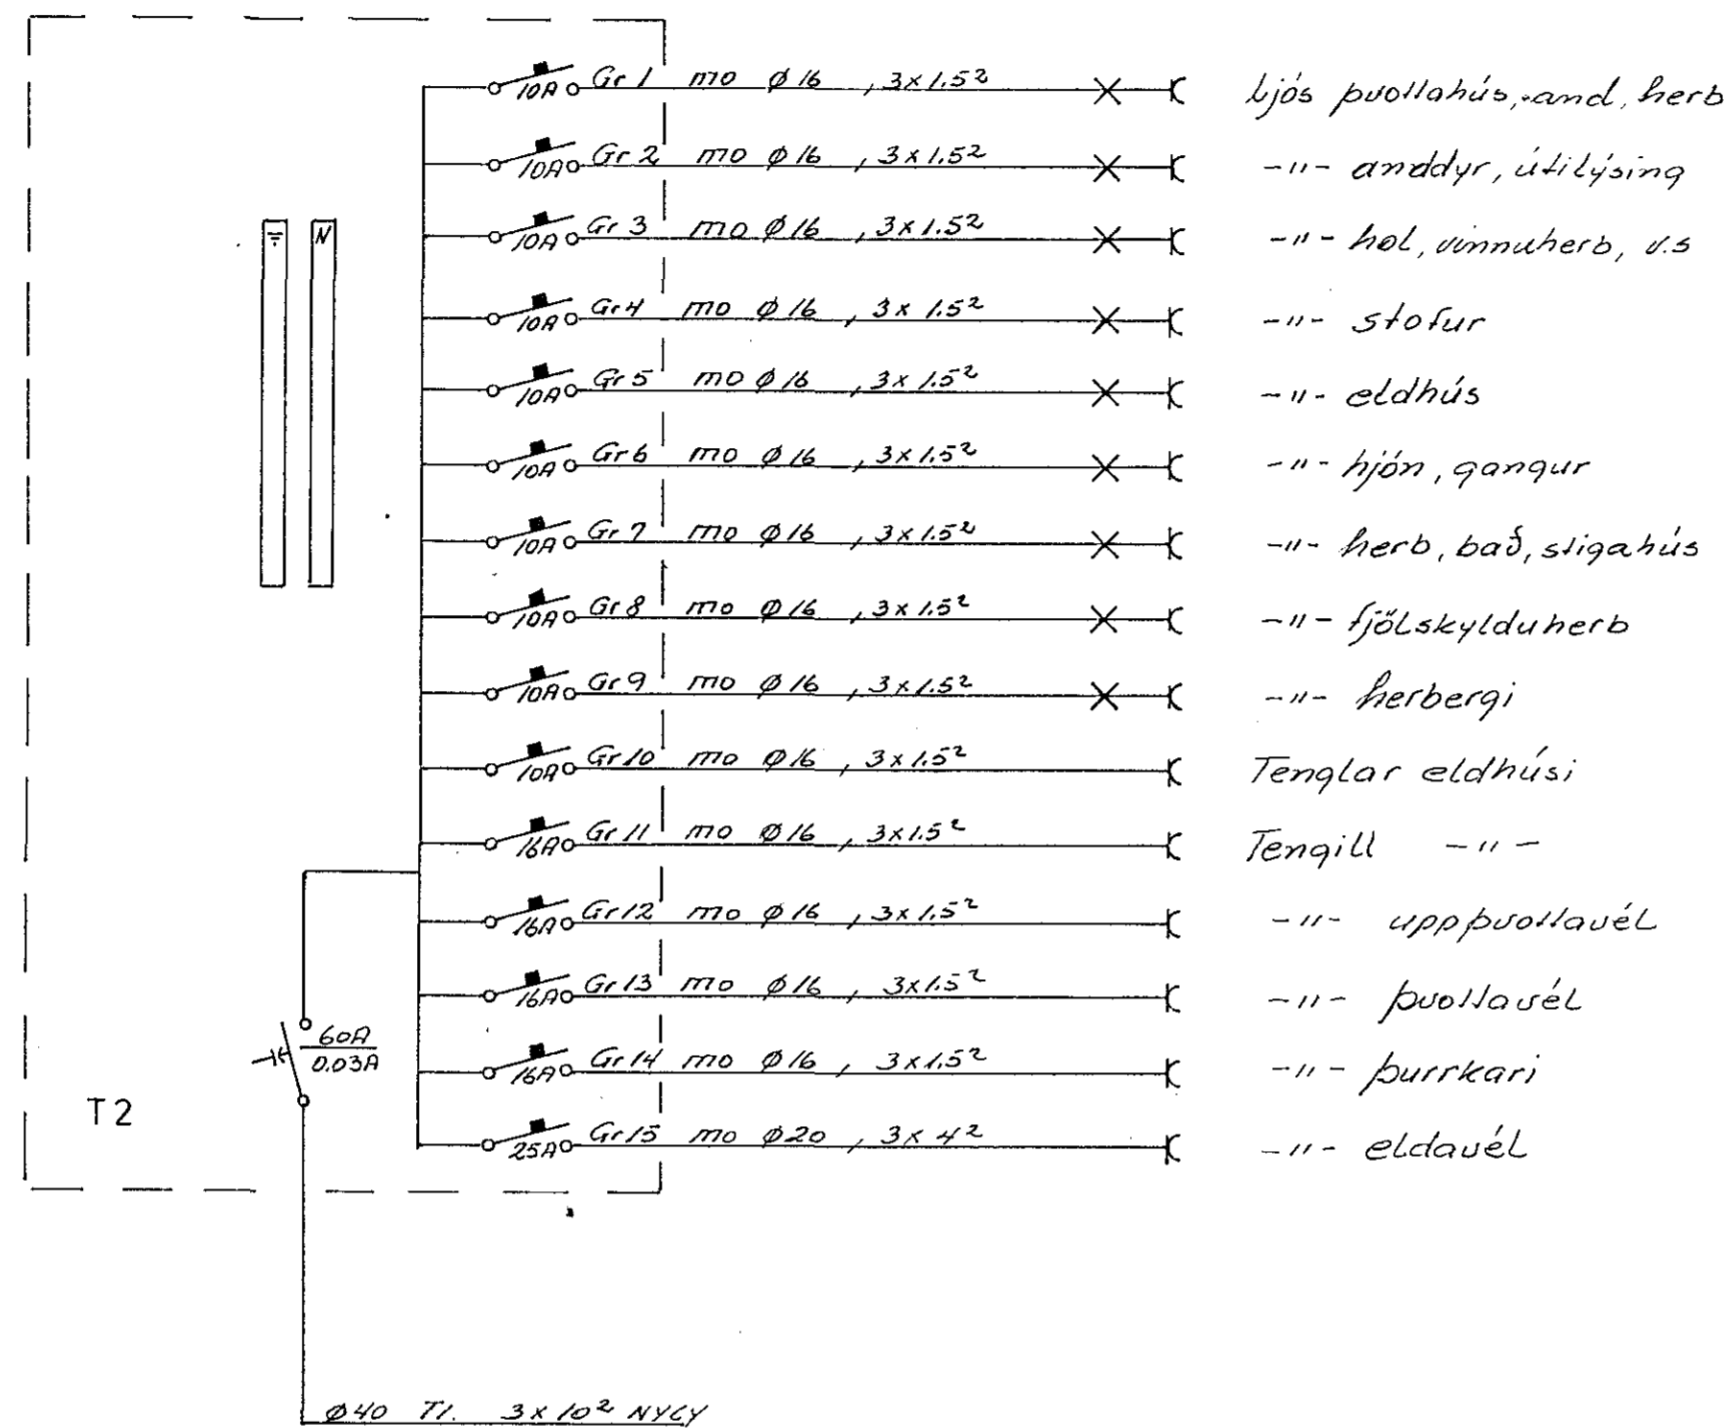 10A Gr 1 mo ø16, 3x1.5² Ljós þvottahús, and, herb
10A Gr 2 mo ø16, 3x1.5² -"- anddyr, útilýsing
10A Gr 3 mo ø16, 3x1.5² -"- hol, vinnuherb, v.s
10A Gr 4 mo ø16, 3x1.5² -"- stofur
10A Gr 5 mo ø16, 3x1.5² -"- eldhús
10A Gr 6 mo ø16, 3x1.5² -"- hjón, gangur
10A Gr 7 mo ø16, 3x1.5² -"- herb, bað, stigahús
10A Gr 8 mo ø16, 3x1.5² -"- fjölskylduherb
10A Gr 9 mo ø16, 3x1.5² -"- herbergi
10A Gr 10 mo ø16, 3x1.5² Tenglar eldhúsi
16A Gr 11 mo ø16, 3x1.5² Tengill -"-
16A Gr 12 mo ø16, 3x1.5² -"- uppþvottavél
16A Gr 13 mo ø16, 3x1.5² -"- þvottavél
16A Gr 14 mo ø16, 3x1.5² -"- þurrkari
25A Gr 15 mo ø20, 3x4² -"- eldavél
N
60A
0.03A
T2
ø40 T1. 3x10² NYCY